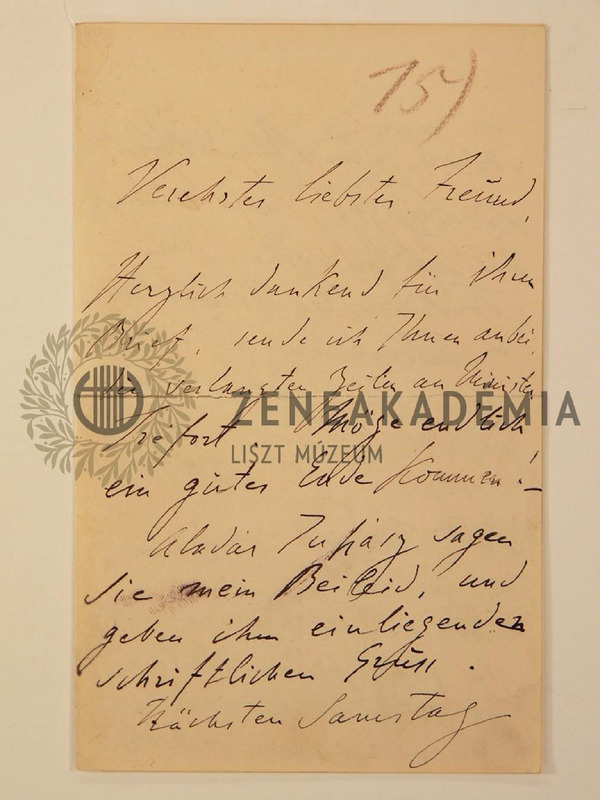 15)
Verehrter liebster Freund,
Herzlich dankend für ihren
Brief, sende ich Ihnen anbei
die verlangten Zeilen an Minister
Tréfort. Möge endlich
ein gutes Ende kommen! –
Aladár Juhász sagen
Sie mein Beileid, und
geben ihm einliegenden
schriftlichen Gruss.
Nächsten Samstag
ZENEAKADEMIA
LISZT MÚZEUM